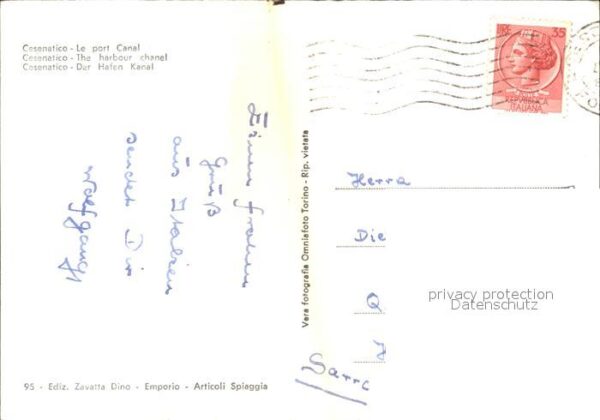 Cesenatico - Le port Canal
Cesenatico - The harbour chanel
Cesenatico - Der Hafen Kanal
LIRE 35
REPVBBLICA
ITALIANA
Einen frohen
Gruß
aus Italien
sendet Dir
Wolfgang
Vera fotografia Omniafoto Torino - Rip. vietata
Herra
Die
Q
Sarre
privacy protection
Datenschutz
95 - Ediz. Zavatta Dino - Emporio - Articoli Spiaggia